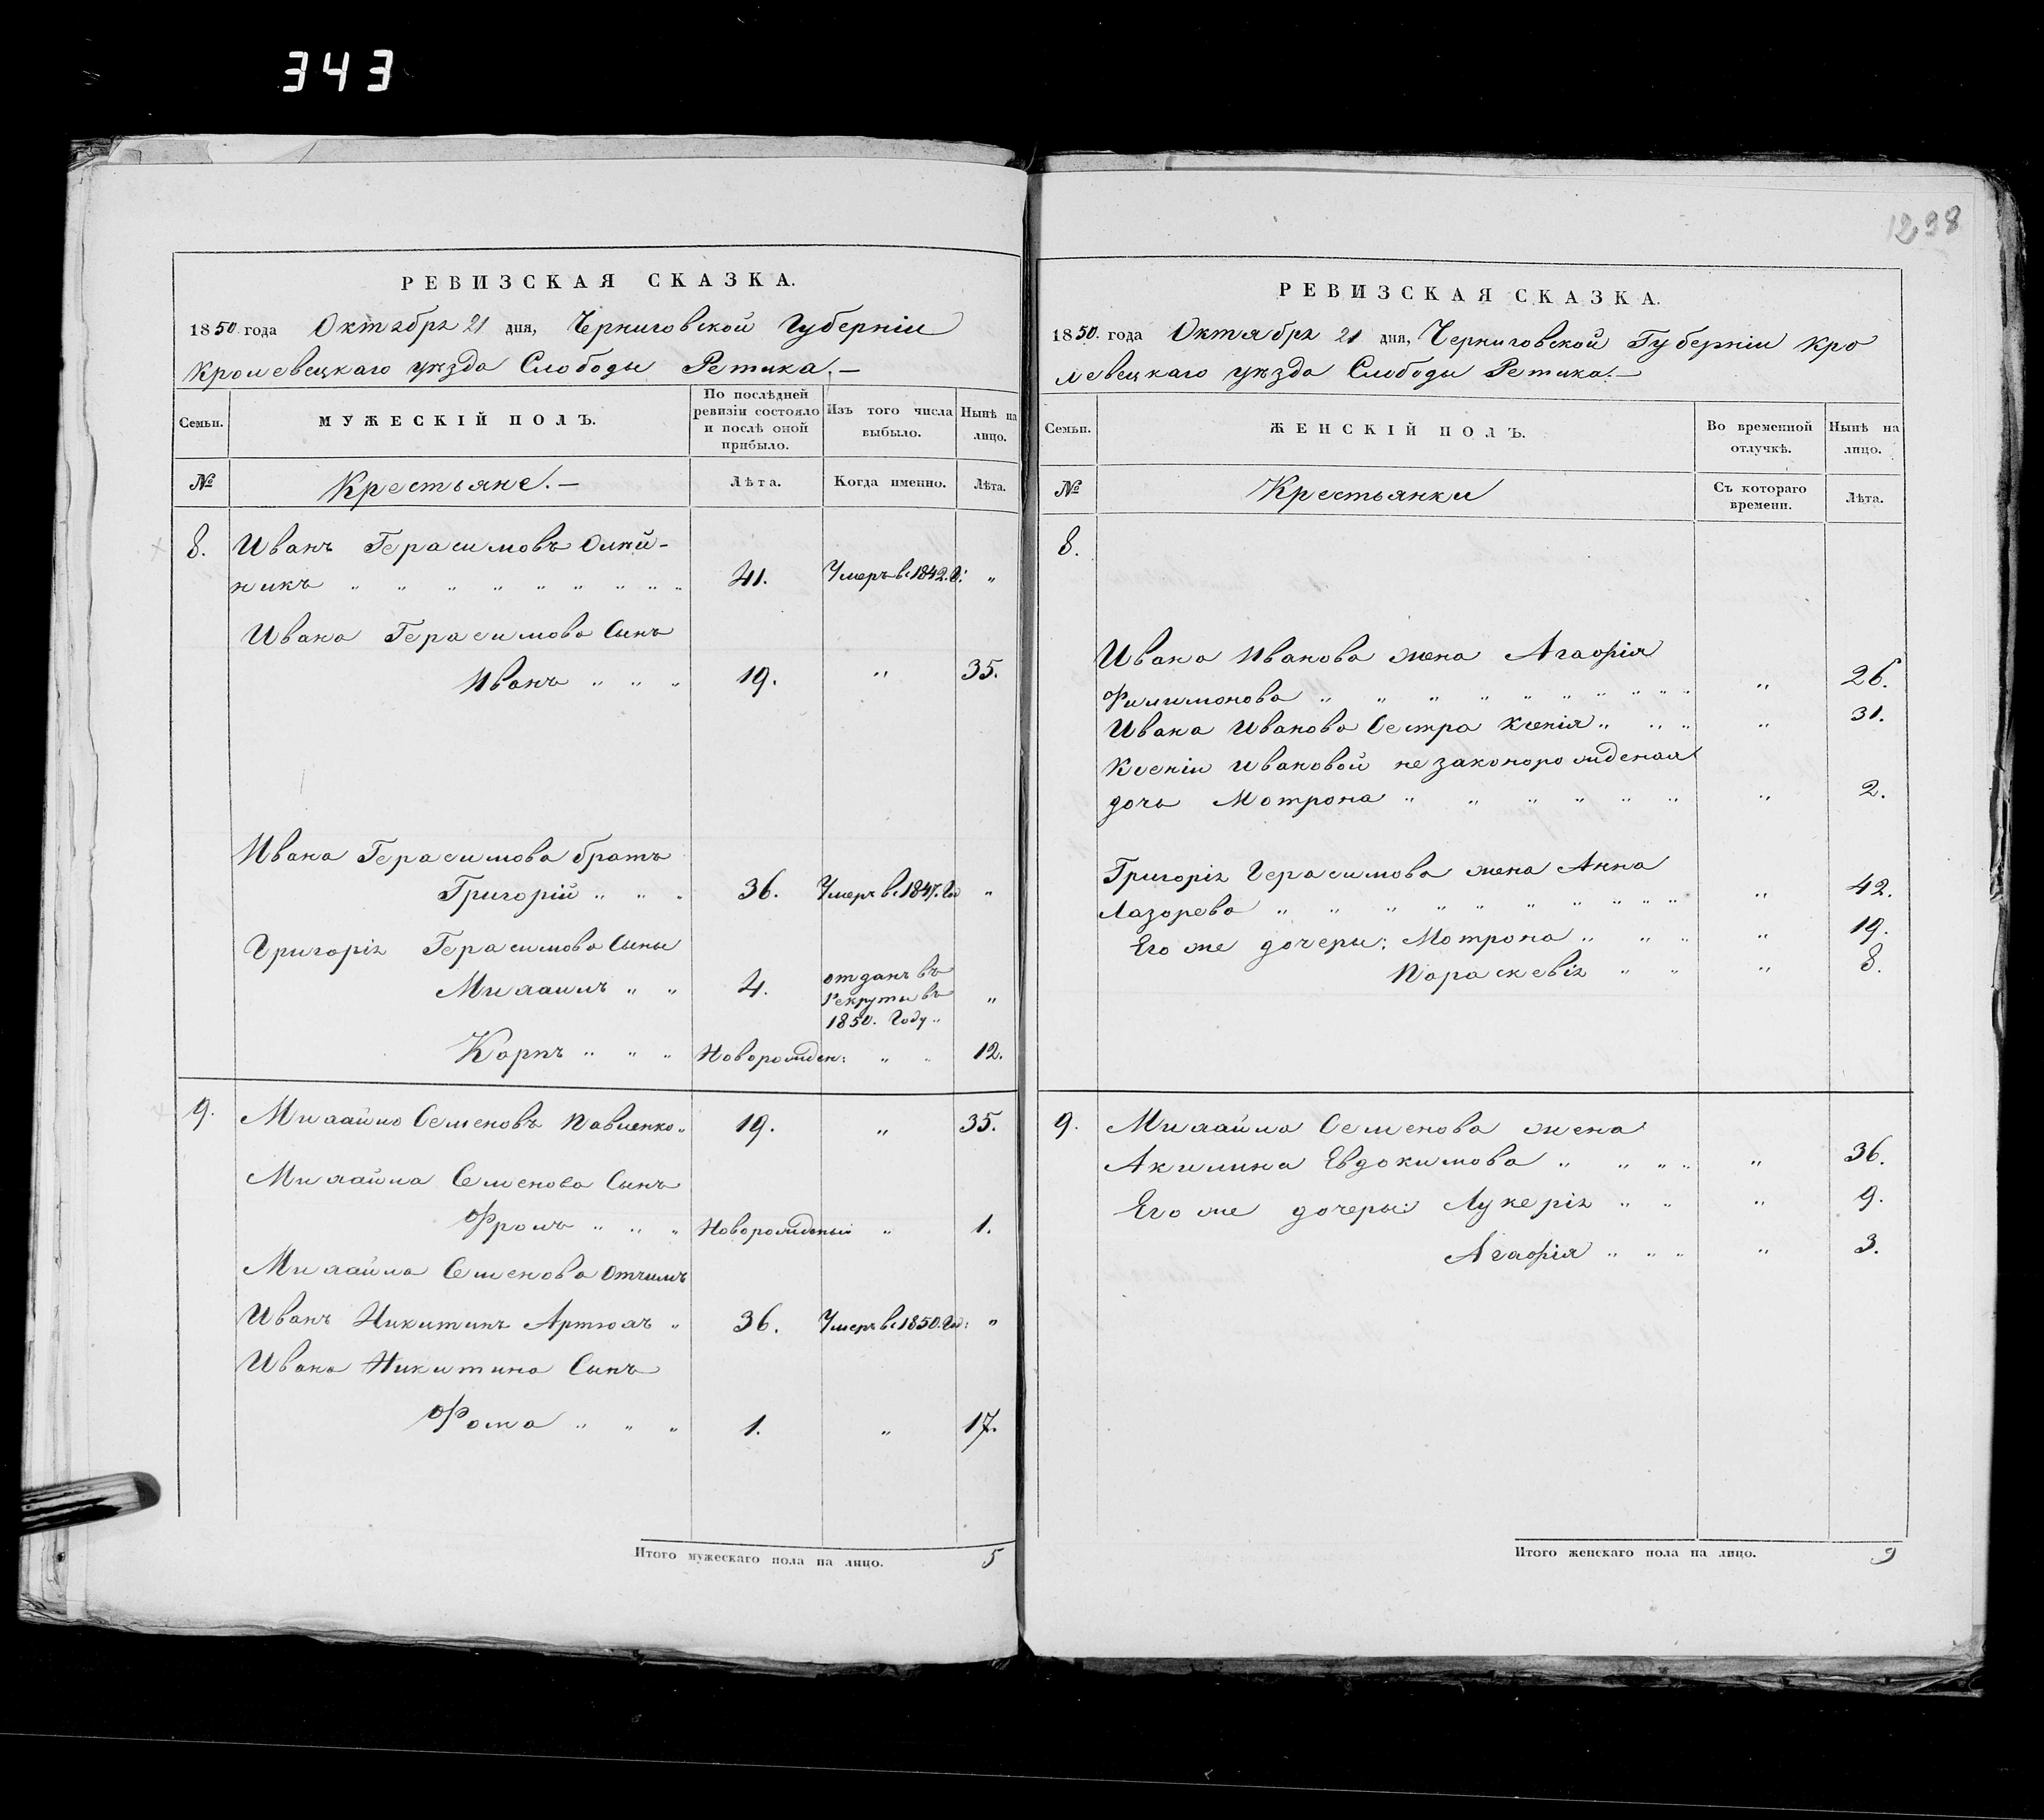 343
1298
РЕВИЗСКАЯ СКАЗКА.
1850. года Октября 21 дня, Черниговской Губерніи
Кролевецкаго уѣзда Слободы Ретика.—
Семьи.
МУЖЕСКІЙ ПОЛЪ.
По послѣдней ревизіи состояло и послѣ оной прибыло.
Изъ того числа выбыло.
Нынѣ на лицо.
№
Крестьяне.—
Лѣта.
Когда именно.
Лѣта.
8. Иванъ Герасимовъ Олѣй-
никъ „ „ „ „ „ „ „ „ „ 41. Умеръ в 1842. г: „
Ивана Герасимова Сынъ
Иванъ „ „ „ 19. „ 35.
Ивана Герасимова братъ
Григорій „ „ „ 36. Умеръ в 1847. го „
Григорія Герасимова Сыны
Михаилъ „ „ 4. отданъ въ Рекруты въ 1850. Году „ „
Карпъ „ „ „ Новорожден: „ „ 12.
9. Михайло Семеновъ Павленко „ 19. „ 35.
Михайла Семенова Сынъ
Фролъ „ „ „ Новорожденый „ 1.
Михайла Семенова Отчимъ
Иванъ Никитинъ Артюхъ „ 36. Умеръ в 1850. го: „
Ивана Никитина Сынъ
Фома „ „ „ 1. „ 17.
Итого мужескаго пола на лицо. 5
РЕВИЗСКАЯ СКАЗКА.
1850. года Октября 21 дня, Черниговской Губерніи Кро
левецкаго уѣзда Слободы Ретика.—
Семьи.
ЖЕНСКІЙ ПОЛЪ.
Во временной отлучкѣ.
Нынѣ на лицо.
№
Крестьянки
Съ котораго времени.
Лѣта.
8.
Ивана Иванова жена Агафія
Филимонова „ „ „ „ „ „ „ „ „ „ 26.
Ивана Иванова Сестра Ксенія „ „ „ „ 31.
Ксеніи Ивановой незаконорожденая
дочь Мотрона „ „ „ „ „ „ „ 2.
Григорія Герасимова жена Анна
Лазорева „ „ „ „ „ „ „ „ „ „ 42.
Его же дочери: Мотрона „ „ „ „ 19.
Параскевія „ „ „ 8.
9. Михайла Семенова жена
Акилина Евдокимова „ „ „ „ „ 36.
Его же дочеры: Лукерія „ „ „ 9.
Агафія „ „ „ „ 3.
Итого женскаго пола на лицо. 9